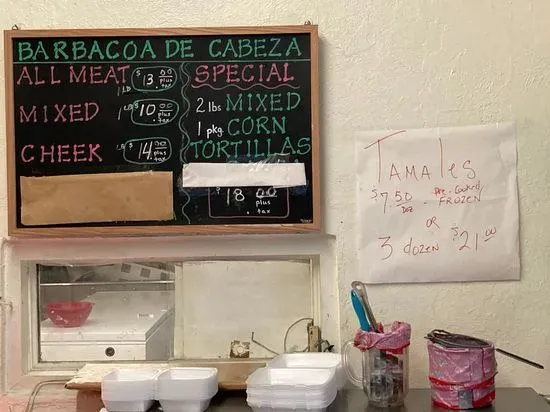 BARBACOA DE CABEZA
ALL MEAT 1 LD $13.00 plus tax
MIXED 1 LD $10.00 plus tax
CHEEK 1 LD $14.00 plus tax
SPECIAL
2 lbs MIXED
1 pkg. CORN
TORTILLAS
18.00
plus
tax
TAMALES
$7.50 DOZ - Pre-Cooked FROZEN
OR
3 dozen $21.00